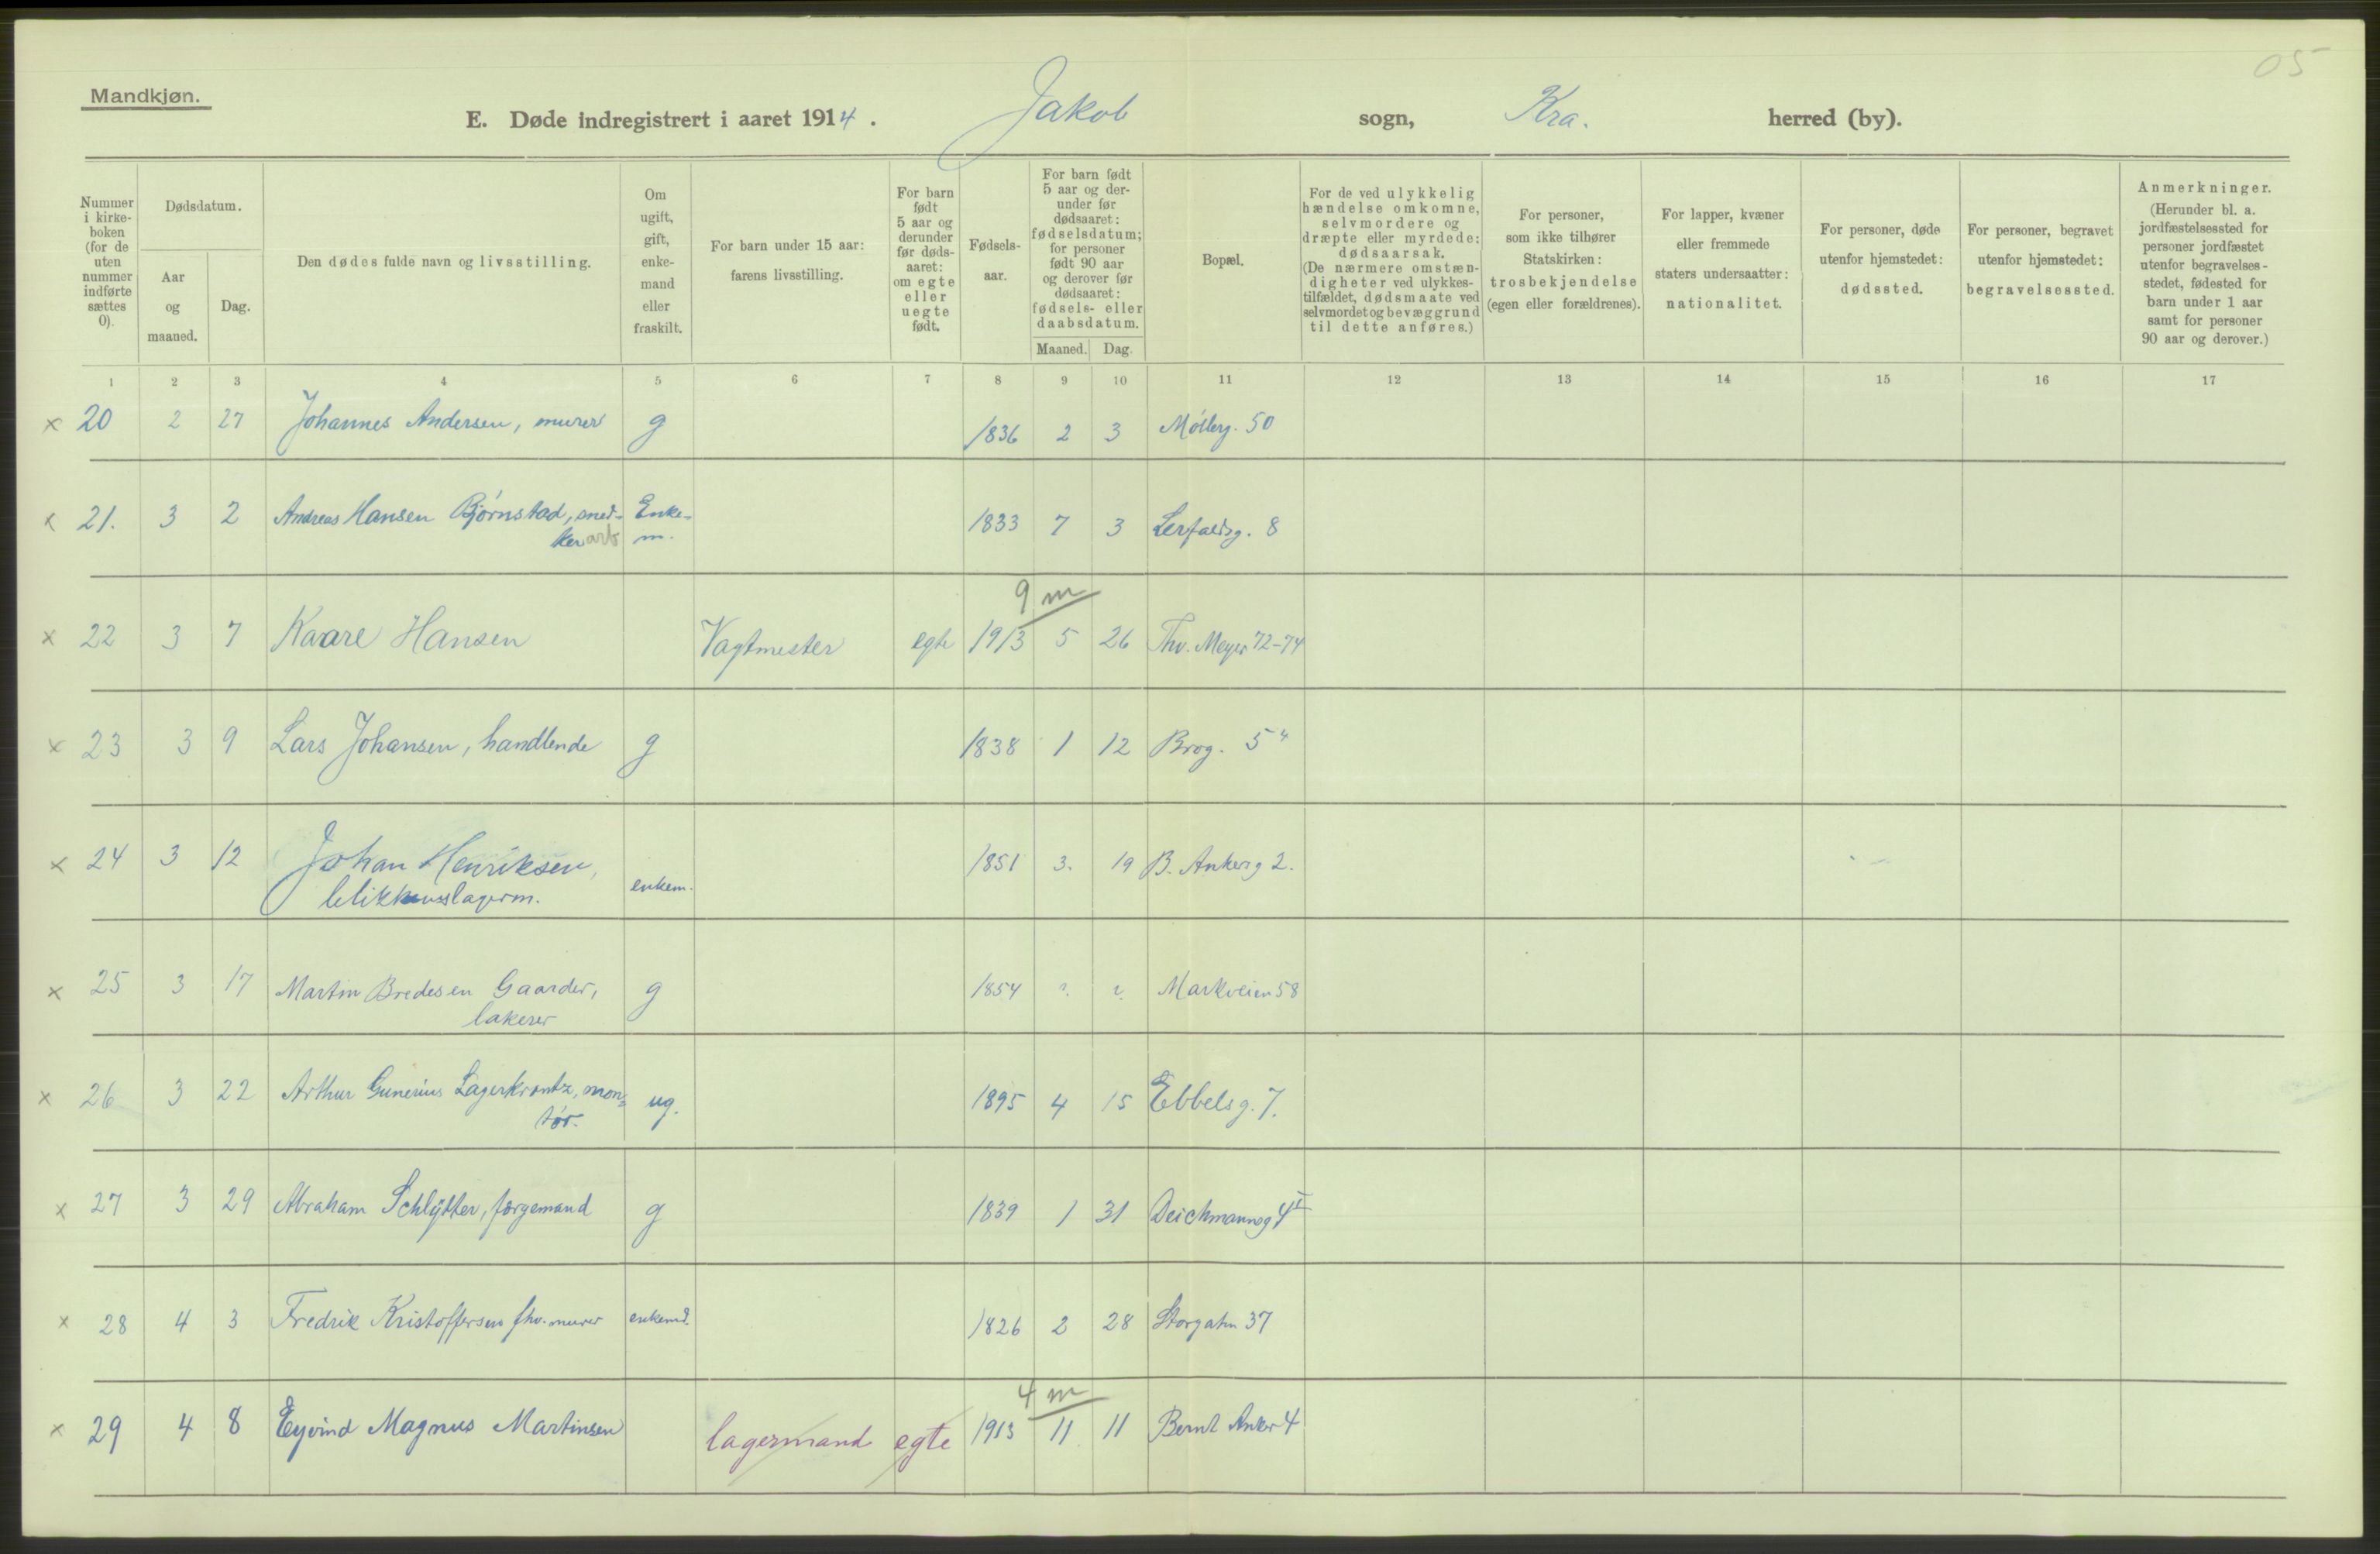 05
Mandkjøn.
E. Døde indregistrert i aaret 1914. Jakob sogn, Kra. herred (by).
Nummer i kirke-boken (for de uten nummer indførte sættes 0).
Dødsdatum.
Aar og maaned.
Dag.
Den dødes fulde navn og livsstilling.
Om ugift, gift, enke-mand eller fraskilt.
For barn under 15 aar: farens livsstilling.
For barn født 5 aar og derunder før døds-aaret: om egte eller uegte født.
Fødsels-aar.
For barn født 5 aar og der-under før dødsaaret: fødselsdatum; for personer født 90 aar og derover før dødsaaret: fødsels- eller daabsdatum.
Maaned. Dag.
Bopæl.
For de ved ulykkelig hændelse omkomne, selvmordere og dræpte eller myrdede: dødsaarsak. (De nærmere omstæn-digheter ved ulykkes-tilfældet, dødsmaate ved selvmordet og bevæggrund til dette anføres.)
For personer, som ikke tilhører Statskirken: trosbekjendelse (egen eller forældrenes).
For lapper, kvæner eller fremmede staters undersaatter: nationalitet.
For personer, døde utenfor hjemstedet: dødssted.
For personer, begravet utenfor hjemstedet: begravelsessted.
Anmerkninger. (Herunder bl. a. jordfæstelsessted for personer jordfæstet utenfor begravelses-stedet, fødested for barn under 1 aar samt for personer 90 aar og derover.)
1 2 3 4 5 6 7 8 9 10 11 12 13 14 15 16 17
x 20 2 27 Johannes Andersen, murer g 1836 2 3 Møllerg. 50
x 21. 3 2 Andreas Hansen Bjørnstad, sned- Enke- 1833 7 3 Lerfaldsg. 8
ker arb m.
9 m
x 22 3 7 Kaare Hansen Vagtmester egte 1913 5 26 Thv. Meyer 72-74
x 23 3 9 Lars Johansen, handlende g 1838 1 12 Brog. 5 4
x 24 3 12 Johan Henriksen, enkem. 1851 3. 19 B. Ankerg 2.
blikkenslagerm.
x 25 3 17 Martin Bredesen Gaarder, g 1854 ?. ?. Markveien 58
lakerer
x 26 3 22 Arthur Gunerius Lagerkrantz, mon= ug. 1895 4 15 Ebbelsg. 7.
tør.
x 27 3 29 Abraham Schlytter, førgemand g 1839 1 31 Deichmannsg 4 I
x 28 4 3 Fredrik Kristoffersen fhv. murer enkemd. 1826 2 28 Storgatn 37
4 m
x 29 4 8 Eyvind Magnus Martinsen lagermand egte 1913 11 11 Bernt Anker 4